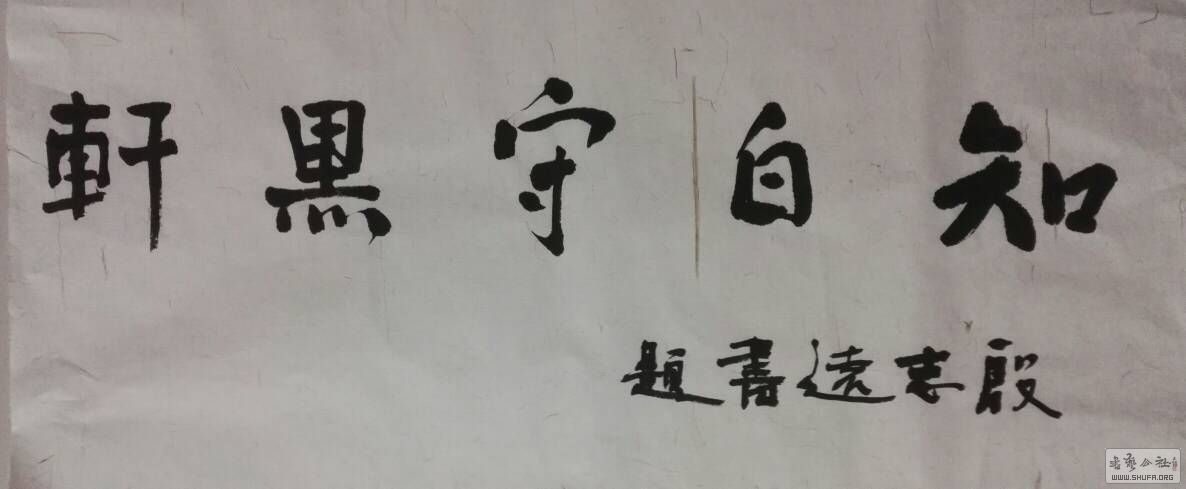 知白守黑軒
殷志遠書題
書艺公社
WWW.SHUFA.ORG